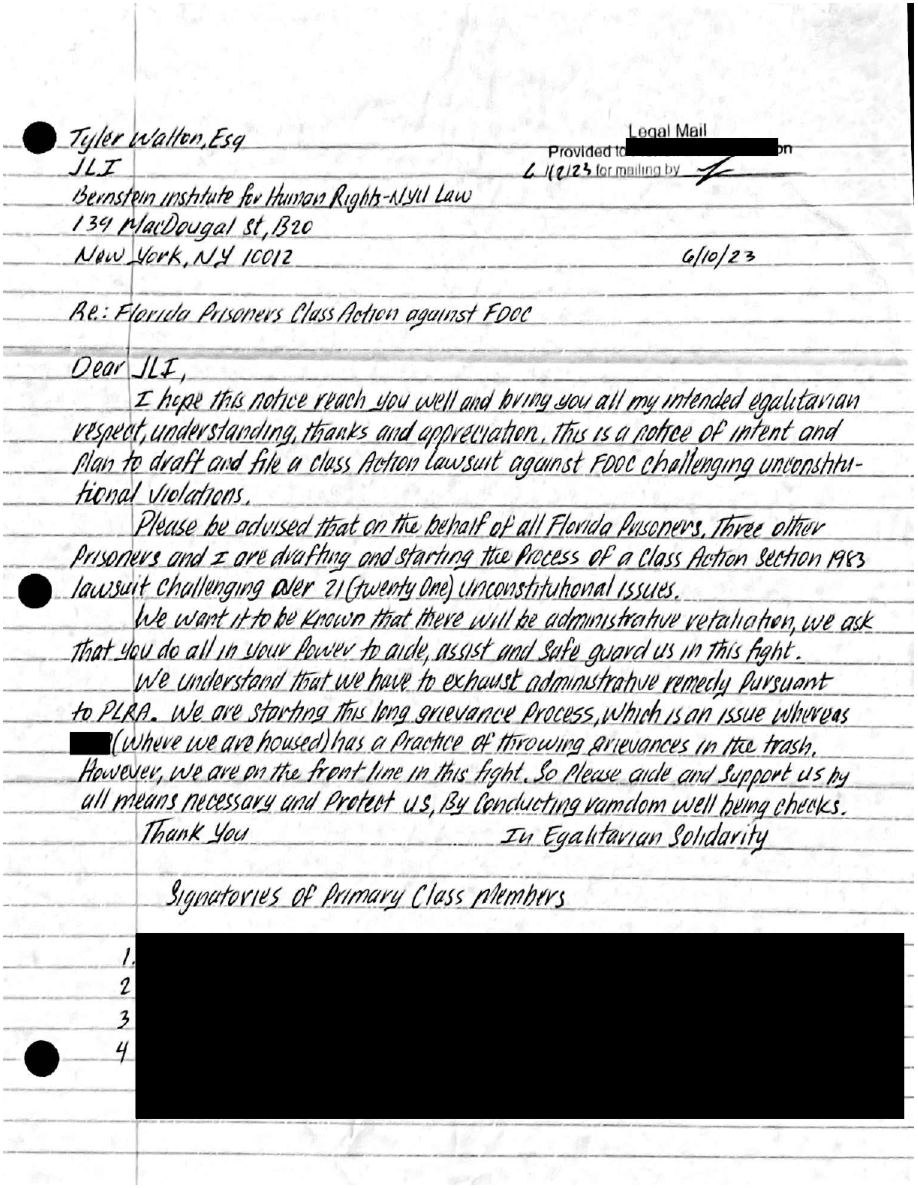 Tyler Walton, Esq
JLI
Bernstein institute for Human Rights-NYU Law
139 MacDougal St, B20
New York, NY 10012
Legal Mail
Provided to
on
6/12/23 for mailing by
6/10/23
Re: Florida Prisoners Class Action against FDOC
Dear JLI,
I hope this notice reach you well and bring you all my intended egalitarian
respect, understanding, thanks and appreciation. This is a notice of intent and
Plan to draft and file a class Action lawsuit against FDOC challenging unconstitu-
tional violations.
Please be advised that on the behalf of all Florida Prisoners. Three other
Prisoners and I are drafting and starting the Process of a Class Action Section 1983
lawsuit challenging over 21 (twenty One) unconstitutional issues.
We want it to be known that there will be administrative retaliation, we ask
that you do all in your Power to aide, assist and safe guard us in this fight.
We understand that we have to exhaust administrative remedy Pursuant
to PLRA. We are starting this long grievance Process, which is an issue whereas
(where we are housed) has a Practice of throwing grievances in the trash.
However, we are on the front line in this fight. So Please aide and Support us by
all means necessary and Protect us, By Conducting ramdom well being checks.
Thank You
In Egalitarian Solidarity
Signatories of Primary Class Members
1.
2
3
4